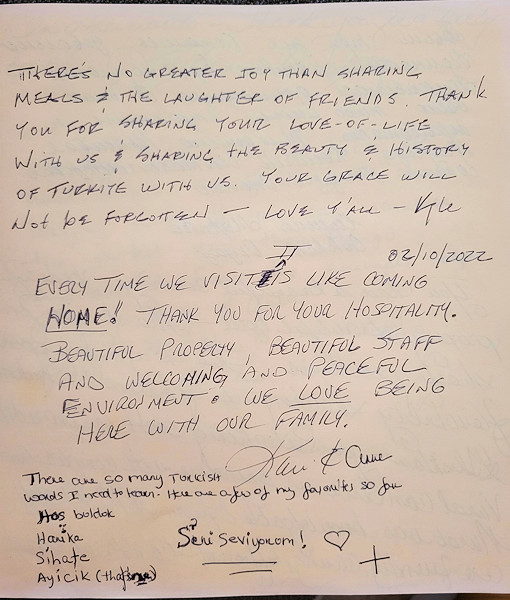 THERE'S NO GREATER JOY THAN SHARING
MEALS & THE LAUGHTER OF FRIENDS. THANK
YOU FOR SHARING YOUR LOVE-OF-LIFE
WITH US & SHARING THE BEAUTY & HISTORY
OF TURKIYE WITH US. YOUR GRACE WILL
NOT BE FORGOTTEN — LOVE Y'ALL - Kyle
02/10/2022
EVERY TIME WE VISIT IT IS LIKE COMING
HOME!! THANK YOU FOR YOUR HOSPITALITY.
BEAUTIFUL PROPERTY, BEAUTIFUL STAFF
AND WELCOMING AND PEACEFUL
ENVIRONMENT. WE LOVE BEING
HERE WITH OUR FAMILY.
& Anne
There are so many Turkish
words I need to learn. Here are a few of my favorites so far
Hos buldok
Harika
Sihate
Ayicik (that's me)
Seni Seviyorom! ♡